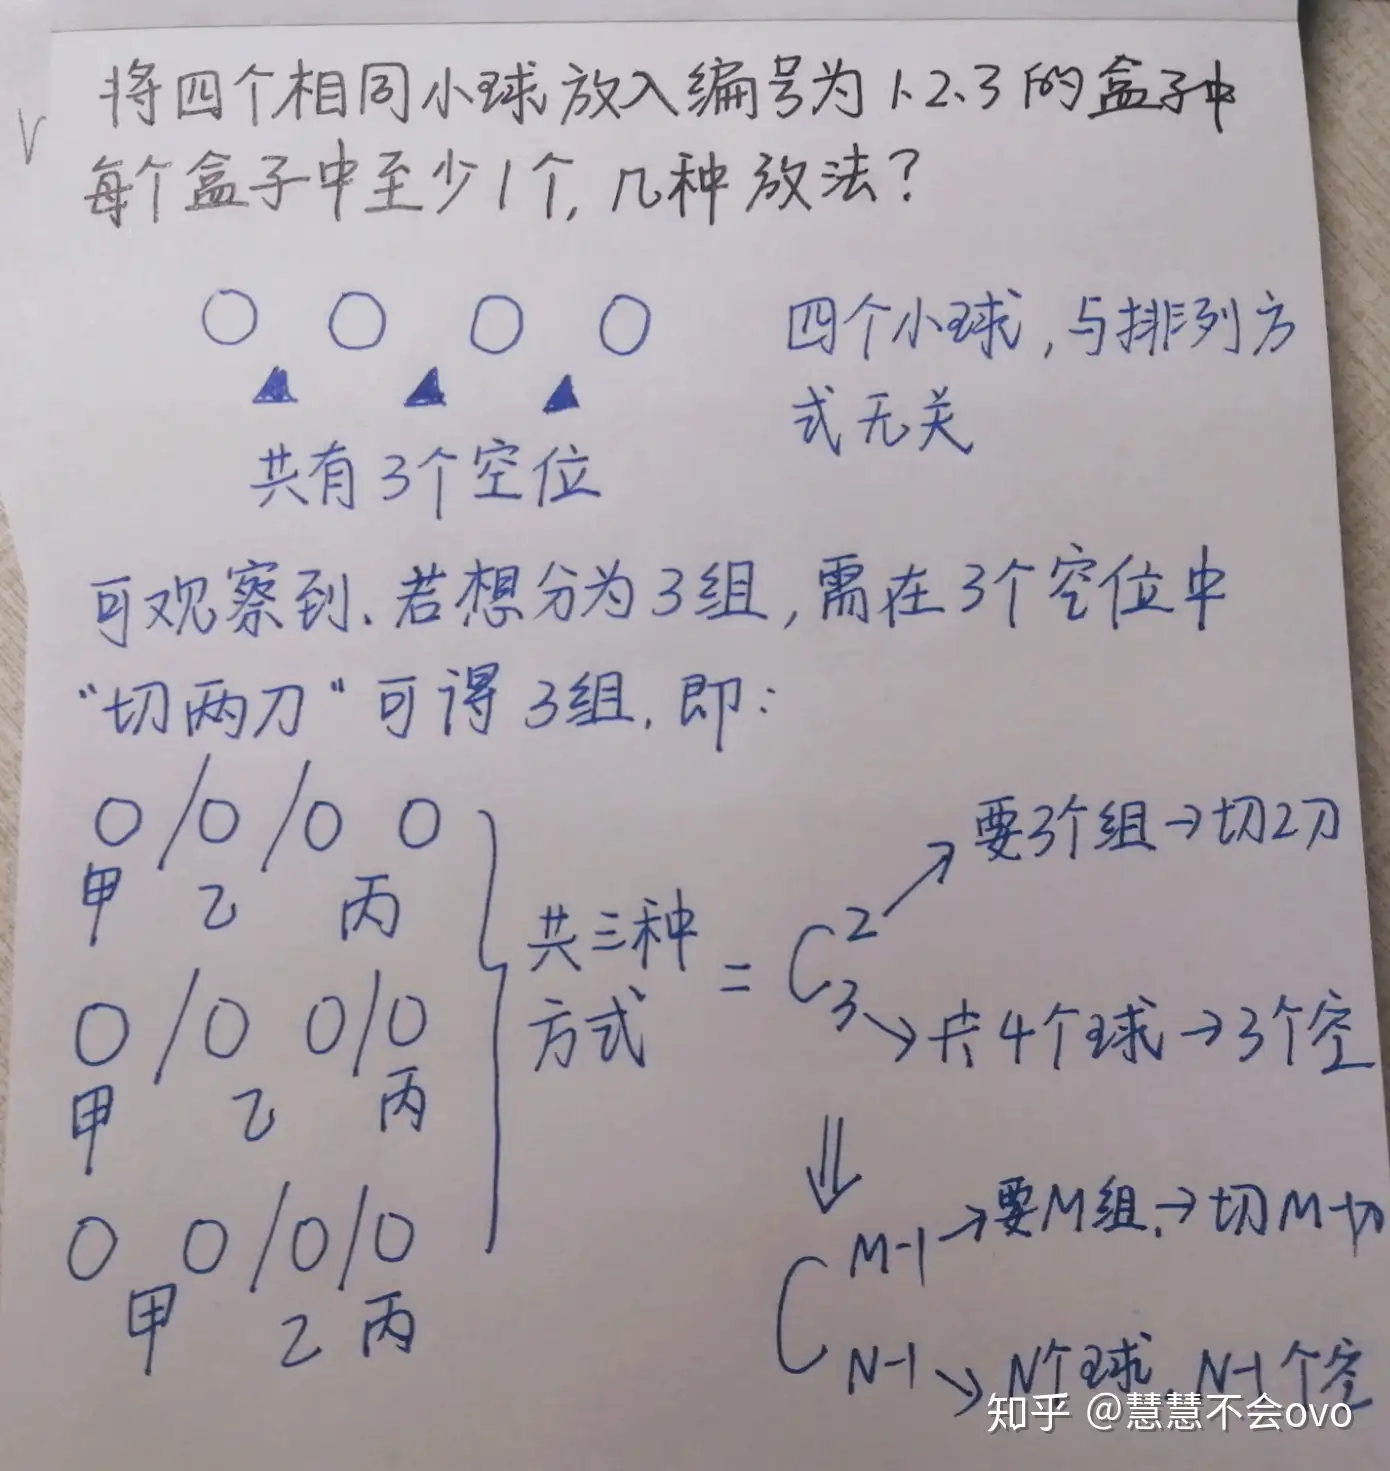 将四个相同小球放入编号为1、2、3的盒子中
每个盒子中至少1个,几种放法?
四个小球,与排列方
式无关
共有3个空位
可观察到、若想分为3组,需在3个空位中
“切两刀”可得3组,即:
甲 乙 丙
甲 乙 丙
甲 乙 丙
共三种
方式
=
C
2
3
要3个组→切2刀
共4个球→3个空
C
M-1
N-1
要M组→切M-1刀
N个球,N-1个空
知乎 @慧慧不会ovo